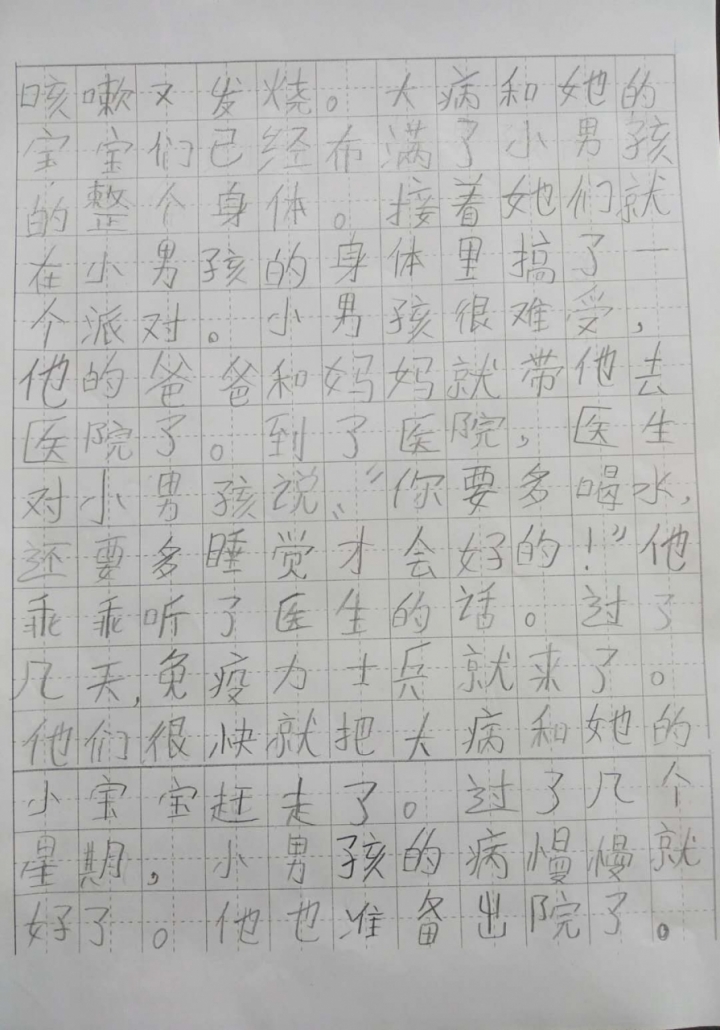 咳嗽又发烧。大病和她的
宝宝们已经布满了小男孩
的整个身体。接着她们就
在小男孩的身体里搞了一
个派对。小男孩很难受，
他的爸爸和妈妈就带他去
医院了。到了医院，医生
对小男孩说：“你要多喝水，
还要多睡觉才会好的！”他
乖乖听了医生的话。过了
几天，免疫力士兵就来了。
他们很快就把大病和她的
小宝宝赶走了。过了几个
星期，小男孩的病慢慢就
好了。他也准备出院了。